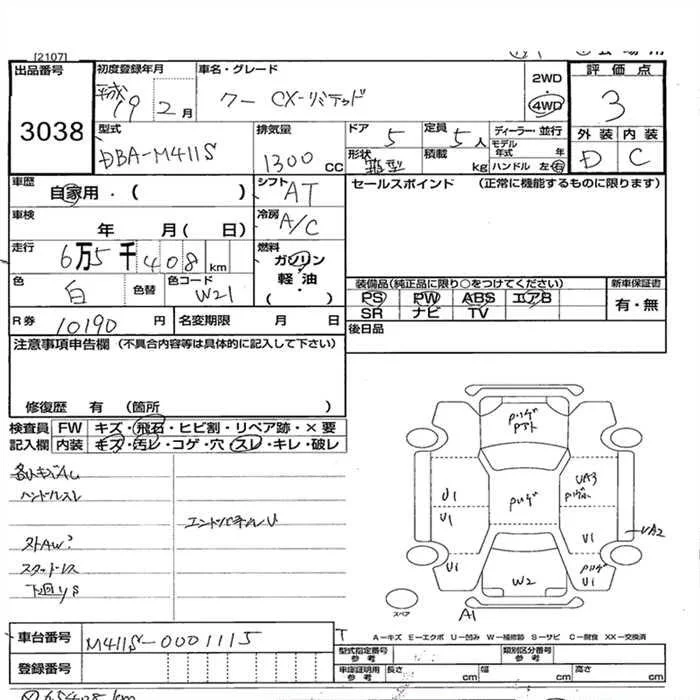 [2107]
出品番号
3038
初度登録年月
平成 19年 2月
車名・グレード
クー CX-リミテッド
2WD
4WD
評価点
3
外装 内装
D C
型式
DBA-M411S
排気量
1300 cc
ドア
5
定員
5人
形状
箱型
積載
kg
ディーラー・並行
モデル年式 年
ハンドル 左・右
車歴
自家用・( )
シフト
AT
セールスポインド (正常に機能するものに限ります)
車検
年 月( 日)
冷房
A/C
走行
6万5千408km
燃料
ガソリン
軽・油
( ・ )
色
白
色替
色コード
W21
装備品(純正品に限り○をつけてください)
PS PW ABS エアB
SR ナビ TV
新車保証書
有・無
R券
10190円
名変期限 月 日
後日品
注意事項申告欄 (不具合内容等は具体的に記入して下さい)
修復歴 有 (箇所 )
検査員
記入欄
FW キズ・飛石・ヒビ割・リペア跡・×要
内装 キズ・汚レ・コゲ・穴・スレ・キレ・破レ
ハンドルスレ
エンドパネルU
外AW?
スタッドレス
下回りS
U1
U1
U1
UA3
U1
U1
UA2
W2
A1
スペア
車台番号
M411S-0001115
登録番号
T
A－キズ E－エクボ U－凹み W－補修跡 S－サビ C－腐食 XX－交換済
型式指定番号
参考
類別区分番号
参考
車庫証明用
参考
長さ cm 幅 cm 高さ cm
65408km